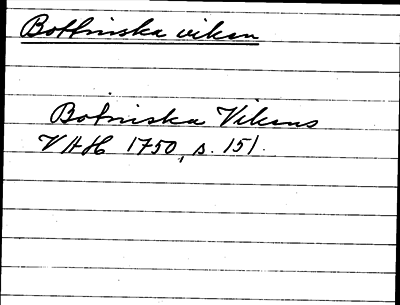 Bottniska viken
Botniska Vikens
VAH 1750, s. 151.